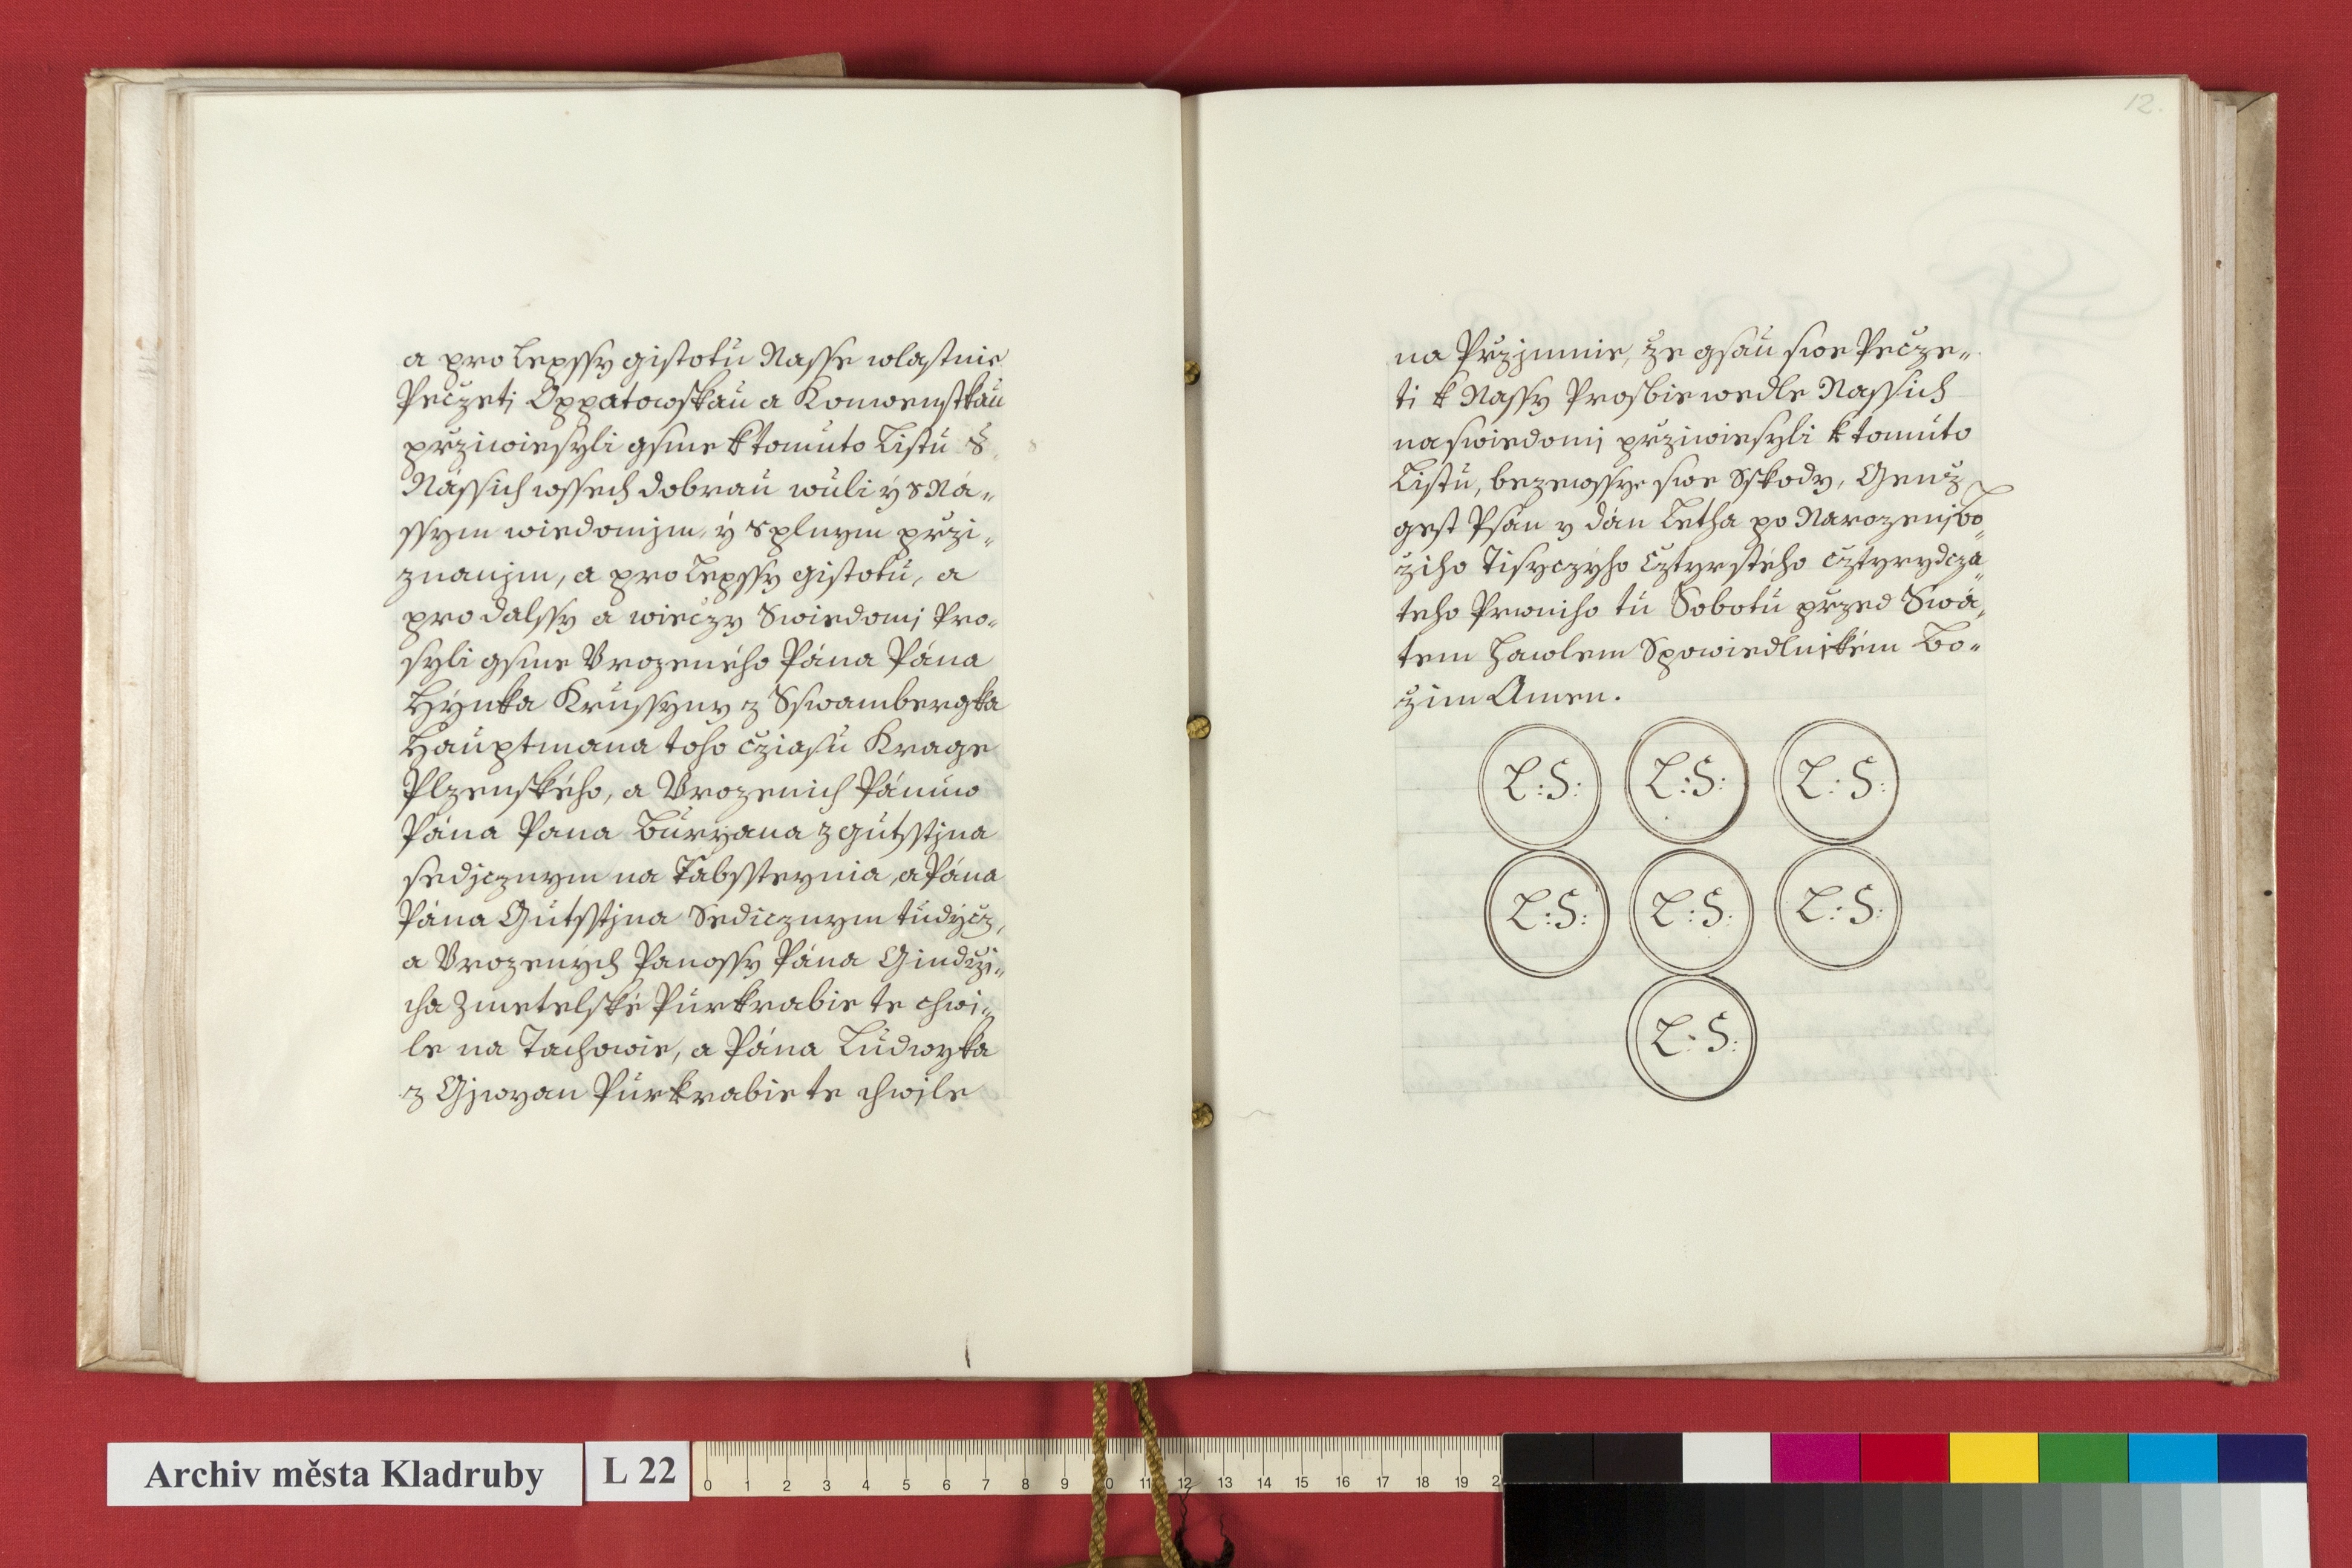 a pro lepssy gistotu Nasse wlastnie
Peczeti Oppatowskau a Konwenstkau
przizwiesyli gsme k tomuto Listu S
Nássich wssech dobrau wuli ý s Ná„
ssym wiedomjm, ý s plnym przi„
znanjm, a pro lepssy gistotu, a
pro dalssy a wieczy Swiedomj Pro„
syli gsme Vrozeného Pána Pána
Hýnka Krussyny z Sswambergka
Hauptmana toho cziasu Krage
Plzenského, a Vrozenich Pánuw
Pána Pana Buryana z Gutsstjna
sedjcznym na Rabssteynia, a Pána
Pána Gutsstjna Sedicznym tudýcz,
a Vrozených Panossy Pána Gindrzi„
cha Zmetelské Purkrabie te chwi„
le na Tachowie, a Pána Ludwyka
z Gjwyan Purkrabie te chwjle
12.
na Przjmnie, že gsau swe Pecze„
ti k Nassy Prosbie wedle Nassich
na swiedomj przizwiesyli k tomuto
Listu, bez wssye swe Sskody, Genž
gest Psán y dán Létha po Narozenj Bo„
žiho Tisyczýho Cztyrstého Cztyrydcza„
teho Prwniho tu Sobotu przed Swa„
tem Hawlem Spowiedlnickém Bo„
žim Amen.
L:S: L:S: L:S:
L:S: L:S: L:S:
L:S:
Archiv města Kladruby L 22
0 1 2 3 4 5 6 7 8 9 10 11 12 13 14 15 16 17 18 19 2